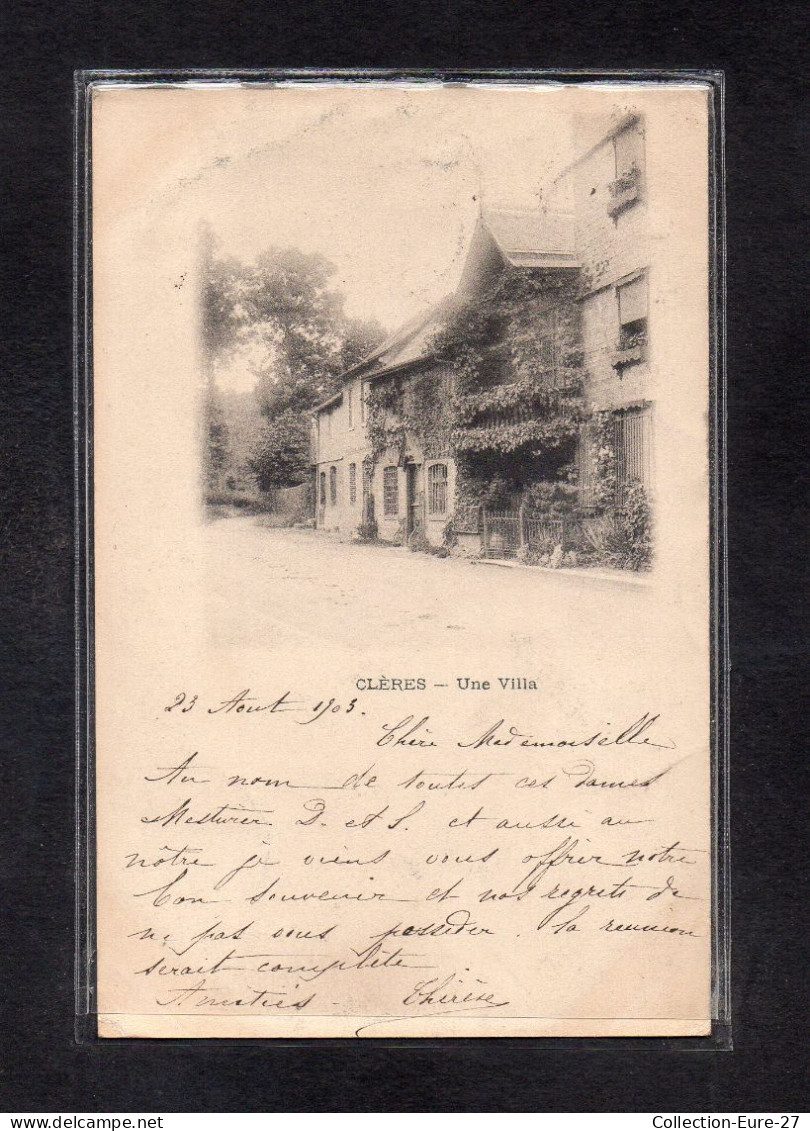 CLÈRES — Une Villa
23 Aout 1903.
Chère Mademoiselle
Au nom de toutes ces dames
D. et S. et aussi au
nôtre je viens vous offrir notre
bon souvenir et nos regrets de
ne pas vous posséder. La reunion
serait complète
Amitiés - Thérèse
Collection-Eure-27